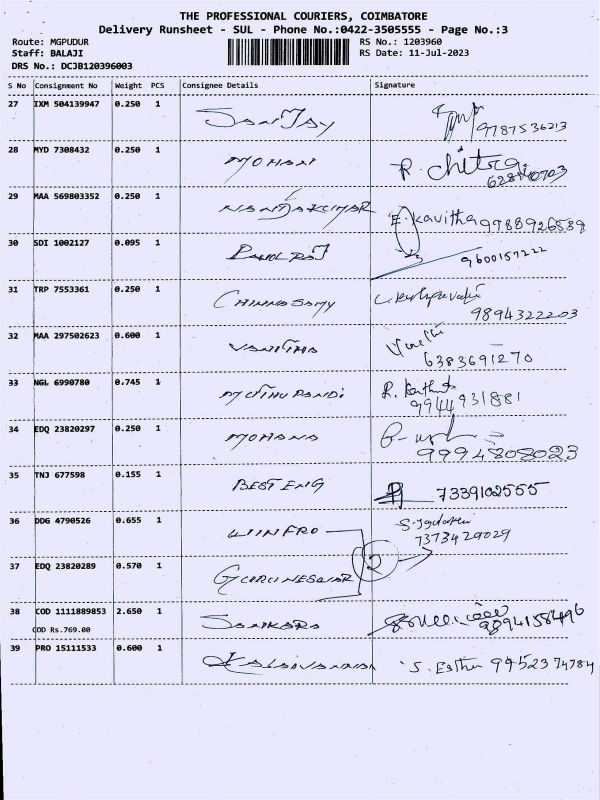 THE PROFESSIONAL COURIERS, COIMBATORE
Delivery Runsheet - SUL - Phone No.:0422-3505555 - Page No.:3
Route: MGPUDUR RS No.: 1203960
Staff: BALAJI RS Date: 11-Jul-2023
DRS No.: DCJB120396003
S No Consignment No Weight PCS Consignee Details Signature
27 IXM 504139947 0.250 1 SANJAY 9787536213
28 MYD 7308432 0.250 1 MOHAN R. Chitra
29 MAA 569803352 0.250 1 NANDAKUMAR E. Kavitha 9988926589
30 SDI 1002127 0.095 1 9600157222
31 TRP 7553361 0.250 1 CHINNASAMY 9894322203
32 MAA 297502623 0.600 1 VANITHA 6383691270
33 NGL 6990780 0.745 1 MUTHU PANDI 9944931881
34 EDQ 23820297 0.250 1 MOHANA 9994808023
35 TNJ 677598 0.155 1 BEST ENG 7339102555
36 DDG 4790526 0.655 1 WINFRO 7373429029
37 EDQ 23820289 0.570 1 2
38 COD 1111889853 2.650 1 SANKARA
COD Rs.769.00
39 PRO 15111533 0.600 1 S. Esther 9952374784